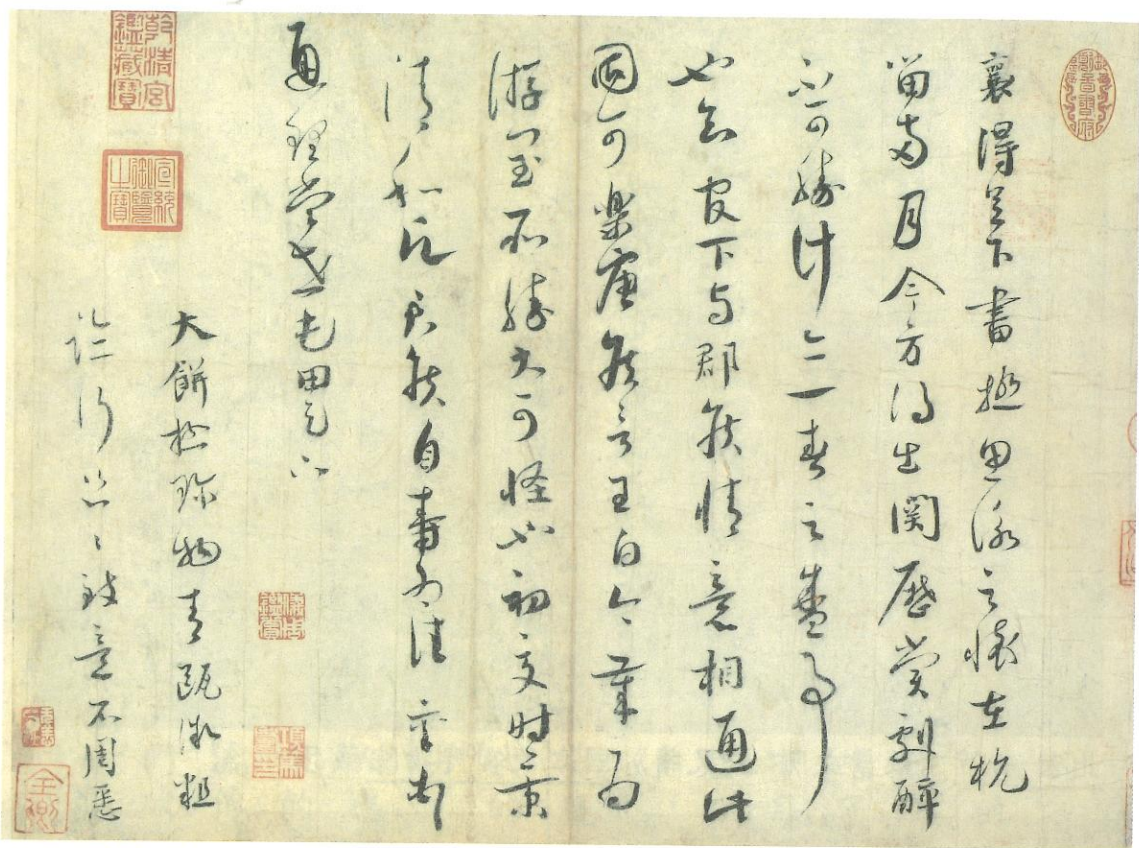 襄得足下書極思詠之懷在杭
留兩月今方得出關歷賞劇醉
不可勝計亦一春之盛事
也知官下与郡侯情意相通此
固可樂唐侯言王白今歲為
游閏所勝大可怪也初夏時景
清和願君侯自壽為佳襄頓首
通理當世屯田足下
大餅極珍物青甌微粗
臨行匆匆致意不周悉
乾清宮鑑藏寶
宣統御覽之寶
儀周鑑賞
全卿